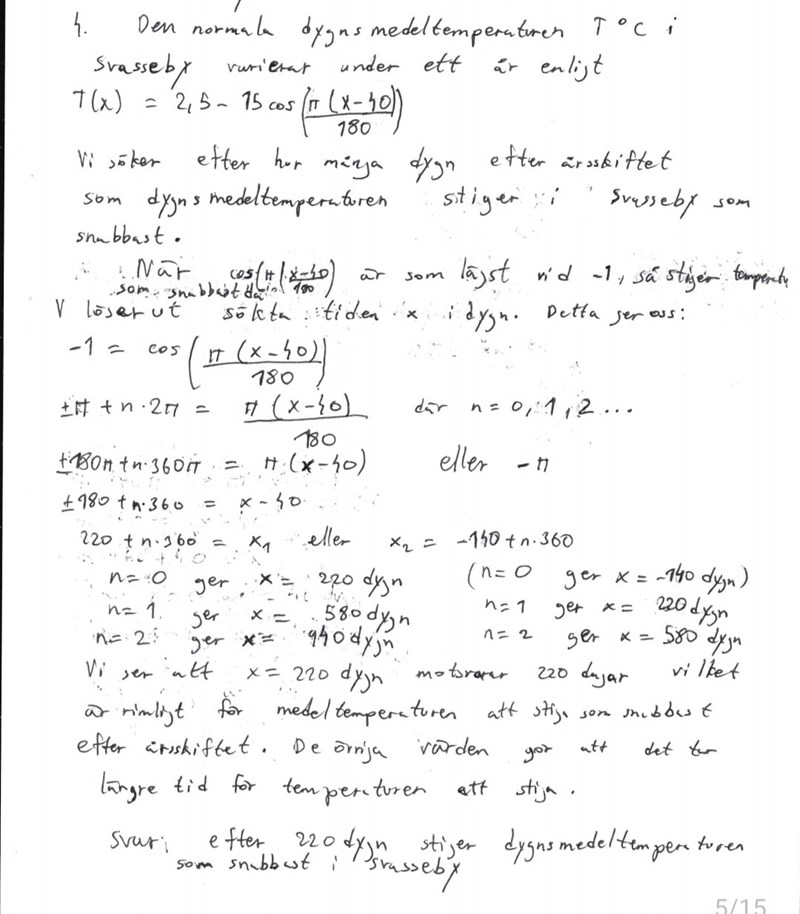 4. Den normala dygnsmedeltemperaturen T °C i
Svasseby varierar under ett år enligt
T(x) = 2,5 - 15 cos(π(x-40)/180)
Vi söker efter hur många dygn efter årsskiftet
som dygnsmedeltemperaturen stiger i Svasseby som
snabbast.
När cos(π(x-40)/180) är som lägst vid -1, så stiger temperatu
som snabbast då
V löser ut sökta tiden x i dygn. Detta ger oss:
-1 = cos(π(x-40)/180)
±π + n·2π = π(x-40)/180 där n = 0, 1, 2 ...
±180π + n·360π = π·(x-40) eller -π
±180 + n·360 = x - 40
220 + n·360 = x₁ eller x₂ = -140 + n·360
n = 0 ger x = 220 dygn (n = 0 ger x = -140 dygn)
n = 1 ger x = 580 dygn n = 1 ger x = 220 dygn
n = 2 ger x = 940 dygn n = 2 ger x = 580 dygn
Vi ser att x = 220 dygn motsvarar 220 dagar vilket
är rimligt för medeltemperaturen att stiga som snabbast
efter årsskiftet. De örniga värden gör att det tar
längre tid för temperaturen att stiga.
Svar: efter 220 dygn stiger dygnsmedeltemperaturen
som snabbast i Svasseby
5/15